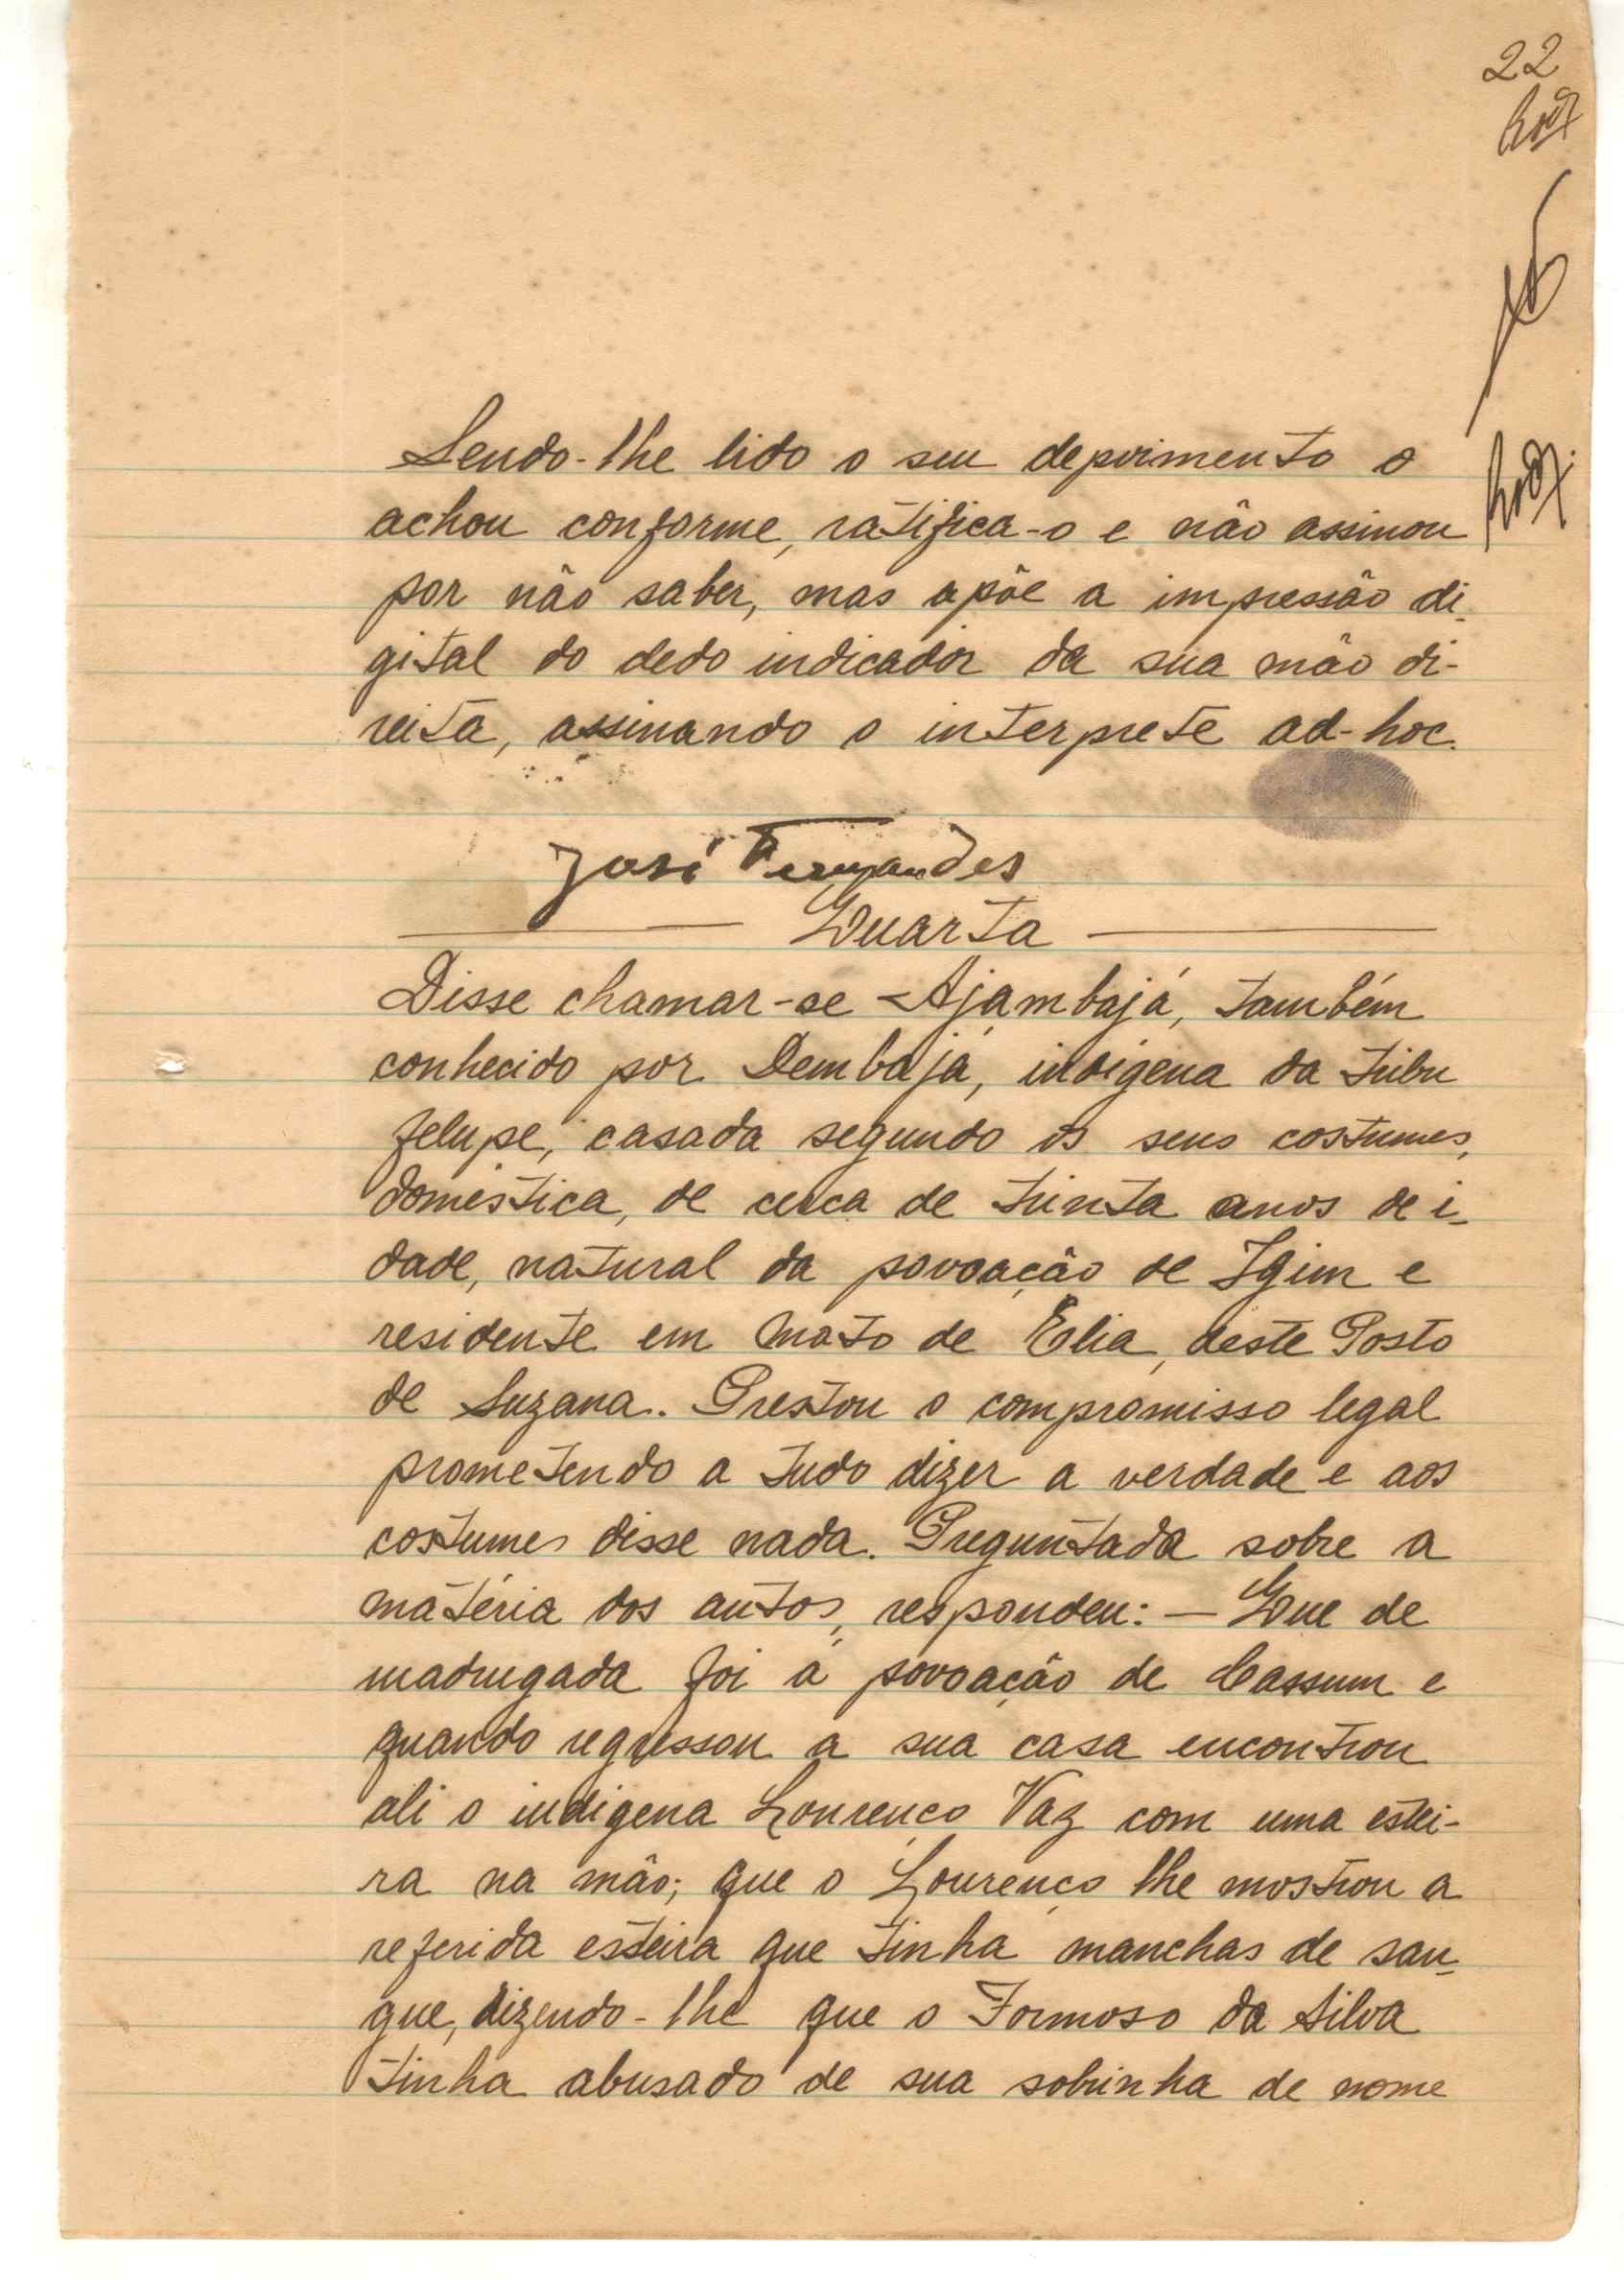 22
Sendo-lhe lido o seu depoimento o
achou conforme, ratifica-o e não assinou
por não saber, mas apõe a impressão di-
gital do dedo indicador da sua mão di-
reita, assinando o interprete ad-hoc.
José Fernandes
Quarta
Disse chamar-se Ajambajá, também
conhecido por Dembajá, indigena da tribu
felupe, casada segundo os seus costumes,
doméstica, de cerca de trinta anos de i-
dade, natural da povoação de Igim e
residente em Mato de Elia, deste Posto
de Suzana. Prestou o compromisso legal
prometendo a tudo dizer a verdade e aos
costumes disse nada. Preguntada sobre a
matéria dos autos, respondeu: — Que de
madrugada foi á povoação de Cassum e
quando regressou a sua casa encontrou
ali o indigena Lourenço Vaz com uma estei-
ra na mão; que o Lourenço lhe mostrou a
referida esteira que tinha manchas de san-
gue, dizendo-lhe que o Formoso da Silva
tinha abusado de sua sobrinha de nome